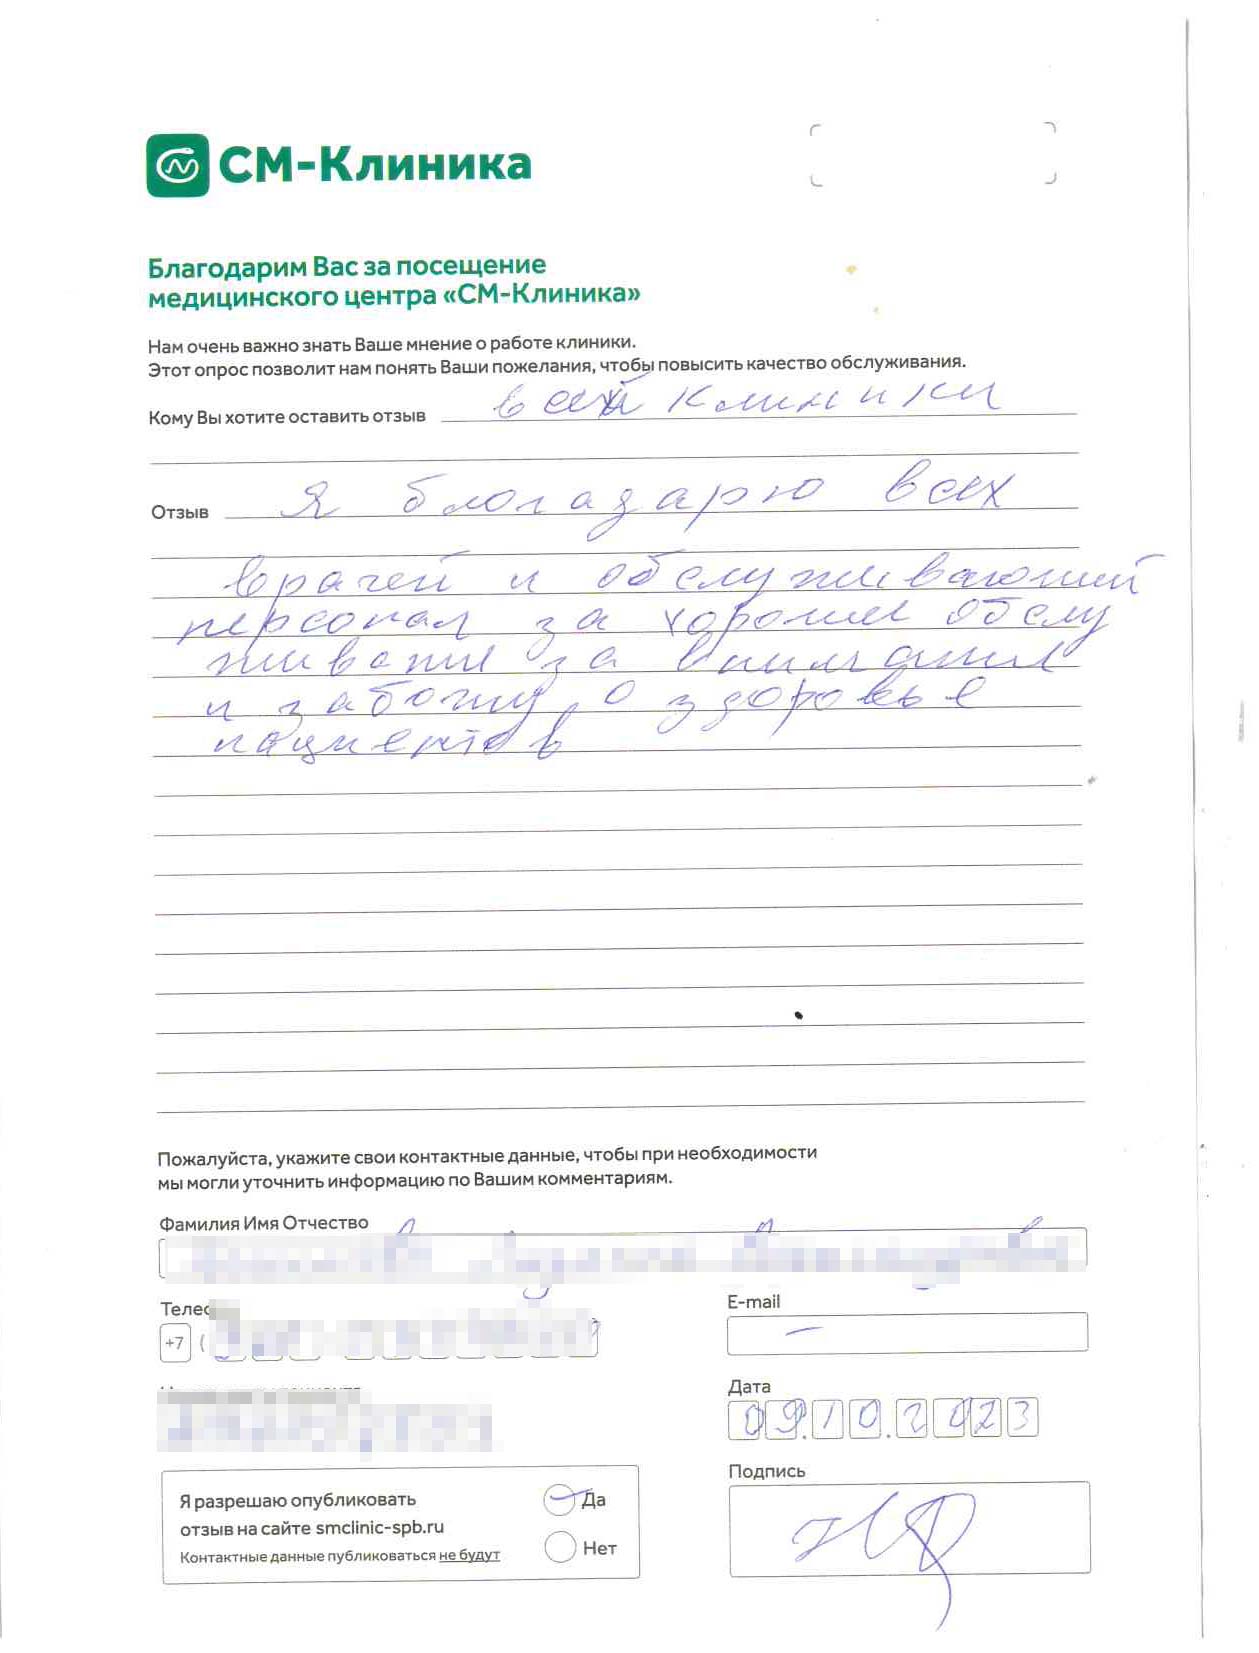 СМ-Клиника
Благодарим Вас за посещение
медицинского центра «СМ-Клиника»
Нам очень важно знать Ваше мнение о работе клиники.
Этот опрос позволит нам понять Ваши пожелания, чтобы повысить качество обслуживания.
Кому Вы хотите оставить отзыв всей клиники
Отзыв Я благадарю всех
врачей и обслуживающий
персонал за хорошее обслу
живание за внимание
и заботу о здоровье
пациентов
Пожалуйста, укажите свои контактные данные, чтобы при необходимости
мы могли уточнить информацию по Вашим комментариям.
Фамилия Имя Отчество
E-mail
+7 (
–
Дата
09.10.2023
Подпись
Я разрешаю опубликовать
отзыв на сайте smclinic-spb.ru
Контактные данные публиковаться не будут
Да
Нет